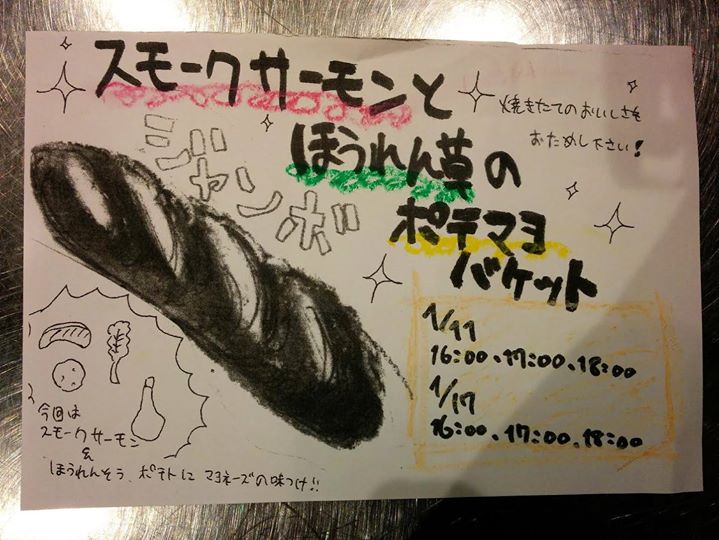 スモークサーモンと
ほうれん草の
ポテマヨ
バケット
ジャンボ
焼きたてのおいしさを
おためし下さい!
1/11
16:00、17:00、18:00
1/17
16:00、17:00、18:00
今回は
スモークサーモン
&
ほうれんそう、ポテトに マヨネーズの味つけ!!